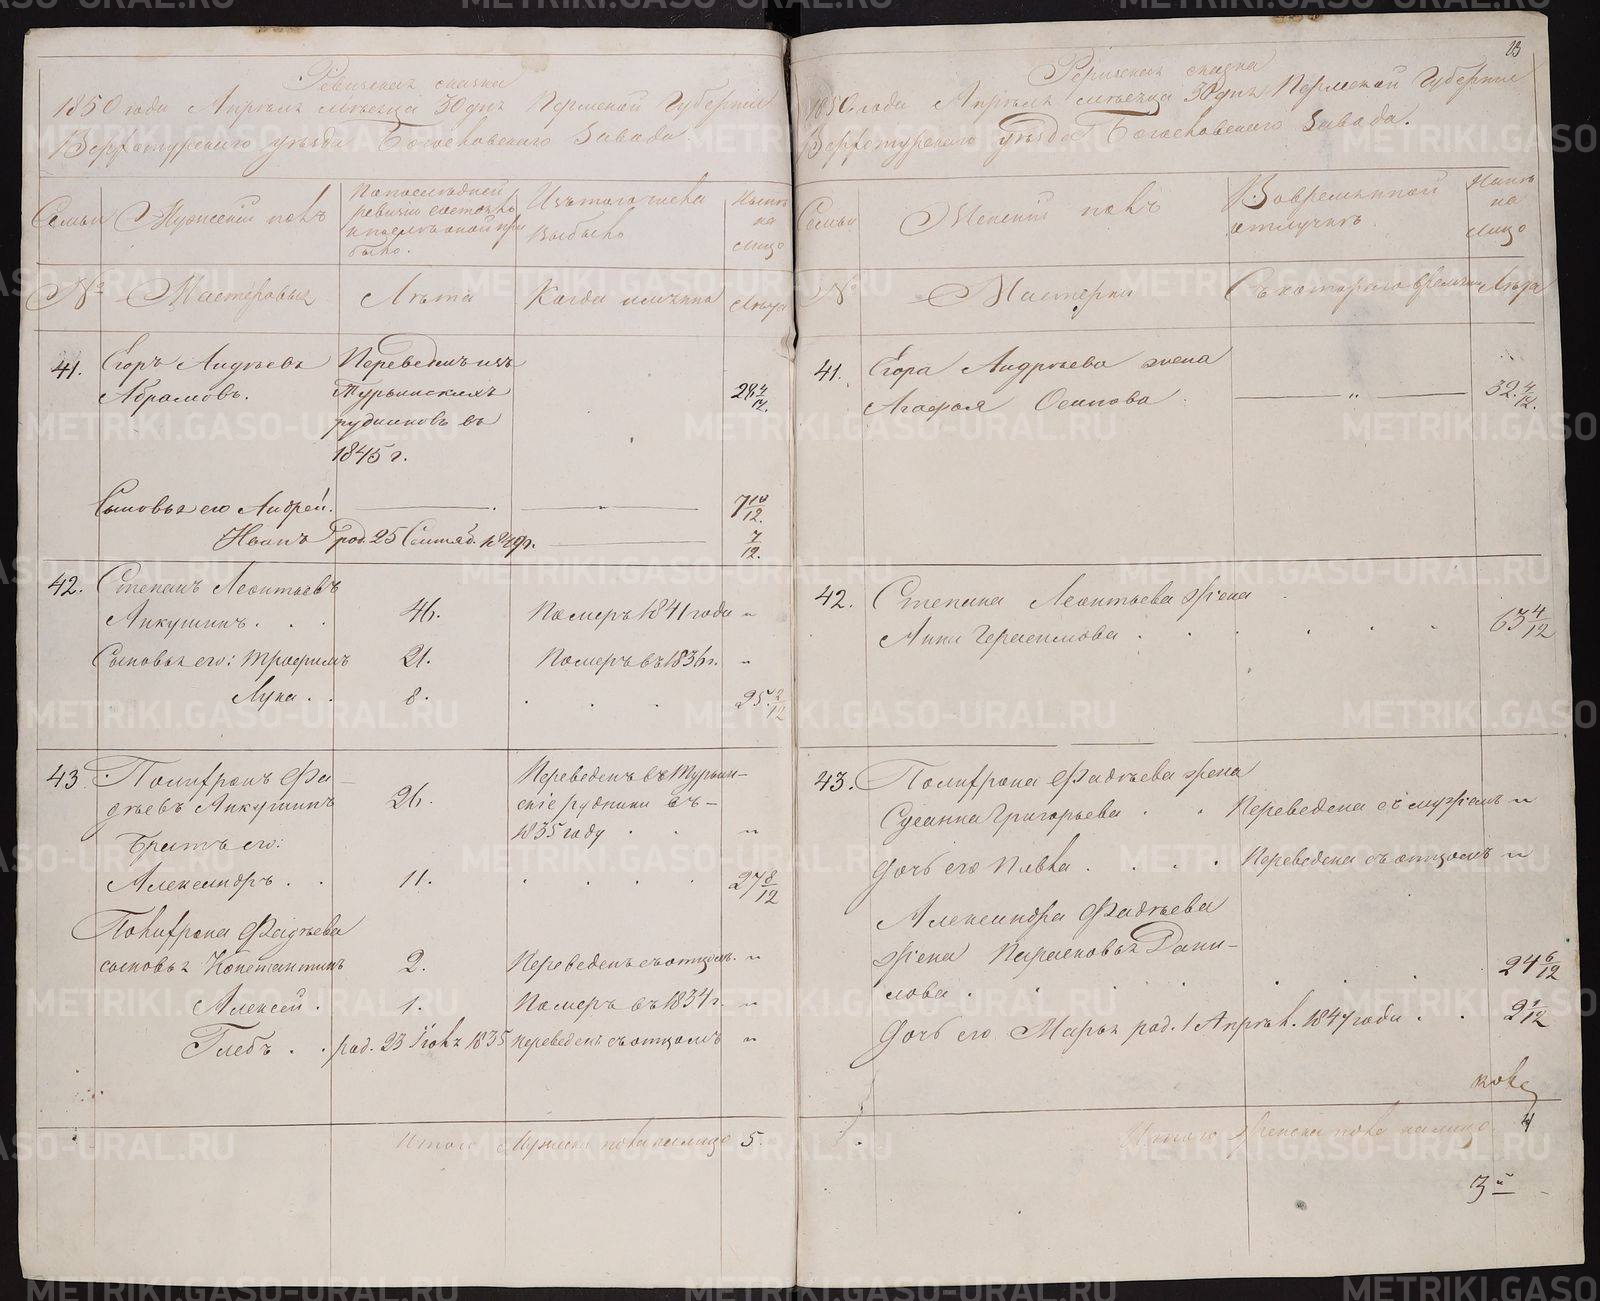 Ревизская сказка
1850 года Апрѣля мѣсяца 30 дня Пермской Губернiи
Верхотурскаго уѣзда Богословскаго Завода
Семьи
Мужескiй полъ
По послѣдней
ревизiи состояло
и послѣ оной при
было.
Изъ того числа
Выбыло
Нынѣ
на
лицо
№
Мастеровыя
Лѣта
Когда имянно
Лѣта
41.
Егоръ Андрѣевъ
Абрамовъ.
Переведенъ изъ
Турьинскихъ
рудниковъ въ
1845 г.
28 4/12.
Сыновья его Андрей.
7 10/12.
Иванъ род. 25 Сентяб. 1849 г.
7/12.
42.
Степанъ Леонтьевъ
Анкушинъ . . .
46.
Померъ 1841 года "
Сыновья его: Трофимъ
21.
Померъ въ 1836 г. "
Лука . .
8.
25 2/12
43
Полифронъ Фа-
дѣевъ Анкушинъ
26.
Переведенъ въ Турьин-
скiе рудники въ-
1835 году . . "
Братъ его:
Александръ . .
11.
27 8/12
Полифрона Фадѣева
сыновья Константинъ
2.
Переведенъ съ отцомъ. "
Алексей .
1.
Померъ въ 1834 г. "
Глебъ . . род. 23 Iюля 1835 переведенъ съ отцомъ "
Итого Мужеска пола на лицо 5.
13
Ревизская сказка
1850 года Апрѣля мѣсяца 30 дня Пермской Губернiи
Верхотурскаго уѣзда Богословскаго Завода.
Семьи
Женскiй полъ
Во временной
отлучкѣ.
Нынѣ
на
лицо
№
Мастерки
Съ котораго времени
Лѣта
41.
Егора Андрѣева жена
Агафья Осипова .
"
32 4/12.
42.
Степана Леонтьева жена
Анна Герасимова . . . . . . .
63 4/12
43.
Полифрона Фадѣева жена
Сусанна Григорьева . . Переведена съ мужемъ "
Дочь его Павла . . . . Переведена съ отцомъ "
Александра Фадѣева
жена Парасковья Дани-
лова . . . . . .
24 6/12
Дочь его Марья род. 1 Апрѣл. 1847 года . .
2 9/12
Итого Женска пола на лицо 4
3
METRIKI.GASO-URAL.RU